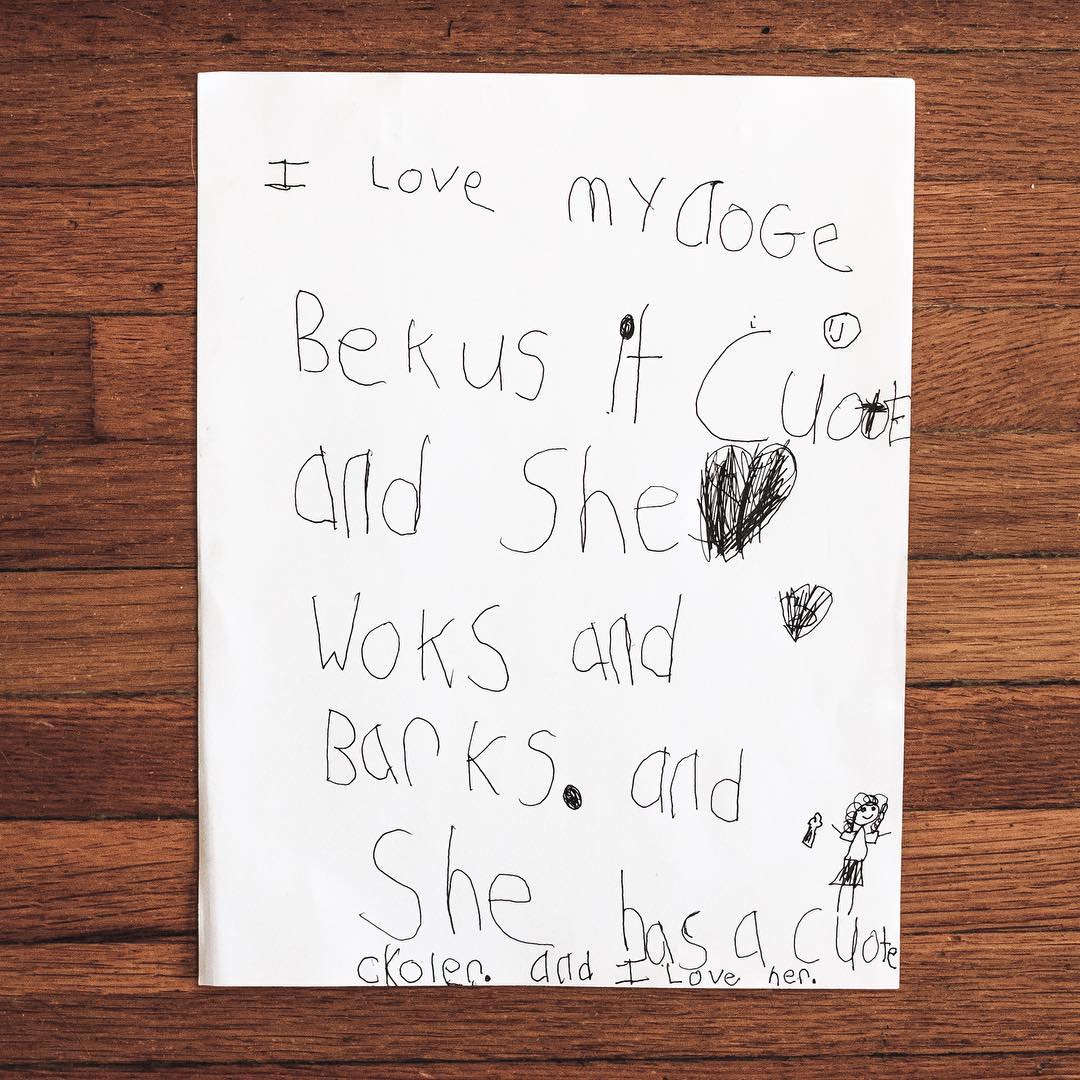 I Love MY doGe
Bekus it CUotE
and She
Woks and
Barks. and
She has a cUote
ckoler. and I Love her.